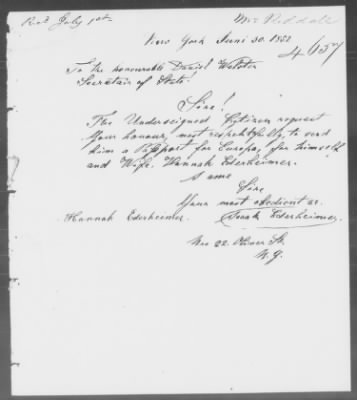 Rec'd July 1st
Mr Riddall
New York Juni 30. 1852
4657
To the honourable Daniel Webster
Secretair of State!
Sire!
The Undersigned Citizen request
Your honour, most respectfully, to send
him a Passport for Europa, for himself
and Wife. Hannah Ederheimer.
I am
Sire
Your most obedient sr.
Hannah Ederheimer. Ederheimer.
No 22 Oliver St.
N. Y.